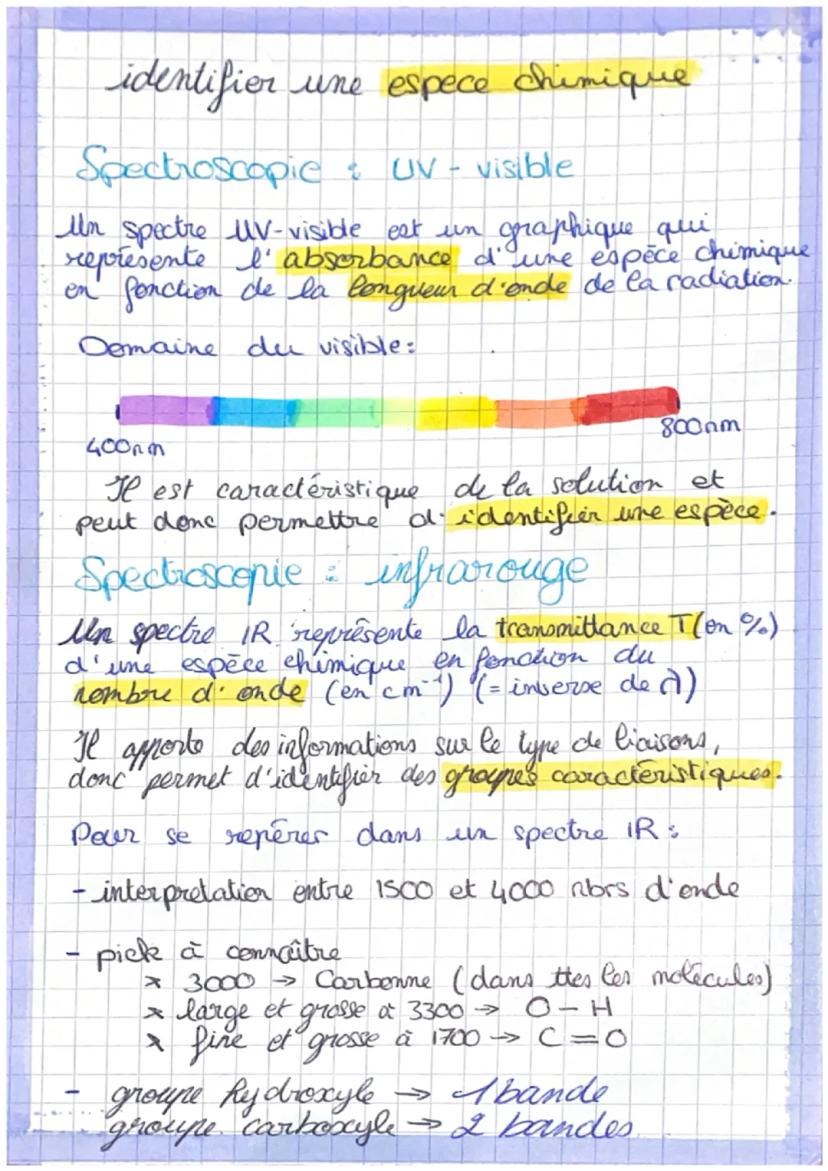 identifier une espece chimique
Spectroscopie : UV - visible
Un spectre UV-visible est un graphique qui
représente l'absorbance d'une espèce chimique
en fonction de la longueur d'onde de la radiation.
Domaine du visible :
400nm
800nm
Il est caractéristique de la solution et
peut donc permettre d'identifier une espèce.
Spectroscopie : infrarouge
Un spectre IR représente la transmittance T (en %)
d'une espèce chimique en fonction du
nombre d'onde (en cm⁻¹) (= inverse de λ)
Il apporte des informations sur le type de liaisons,
donc permet d'identifier des groupes caractéristiques.
Pour se repérer dans un spectre IR :
- interpretation entre 1500 et 4000 nbrs d'onde
- pick à connaître
x 3000 → Carbonne (dans ttes les molécules)
x large et grosse à 3300 → O-H
x fine et grosse à 1700 → C=O
- groupe hydroxyle → 1 bande
groupe carboxyle → 2 bandes